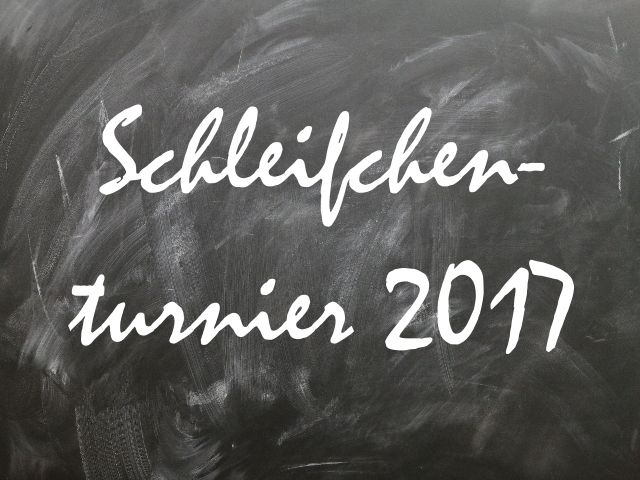 Schleifchen-
turnier 2017